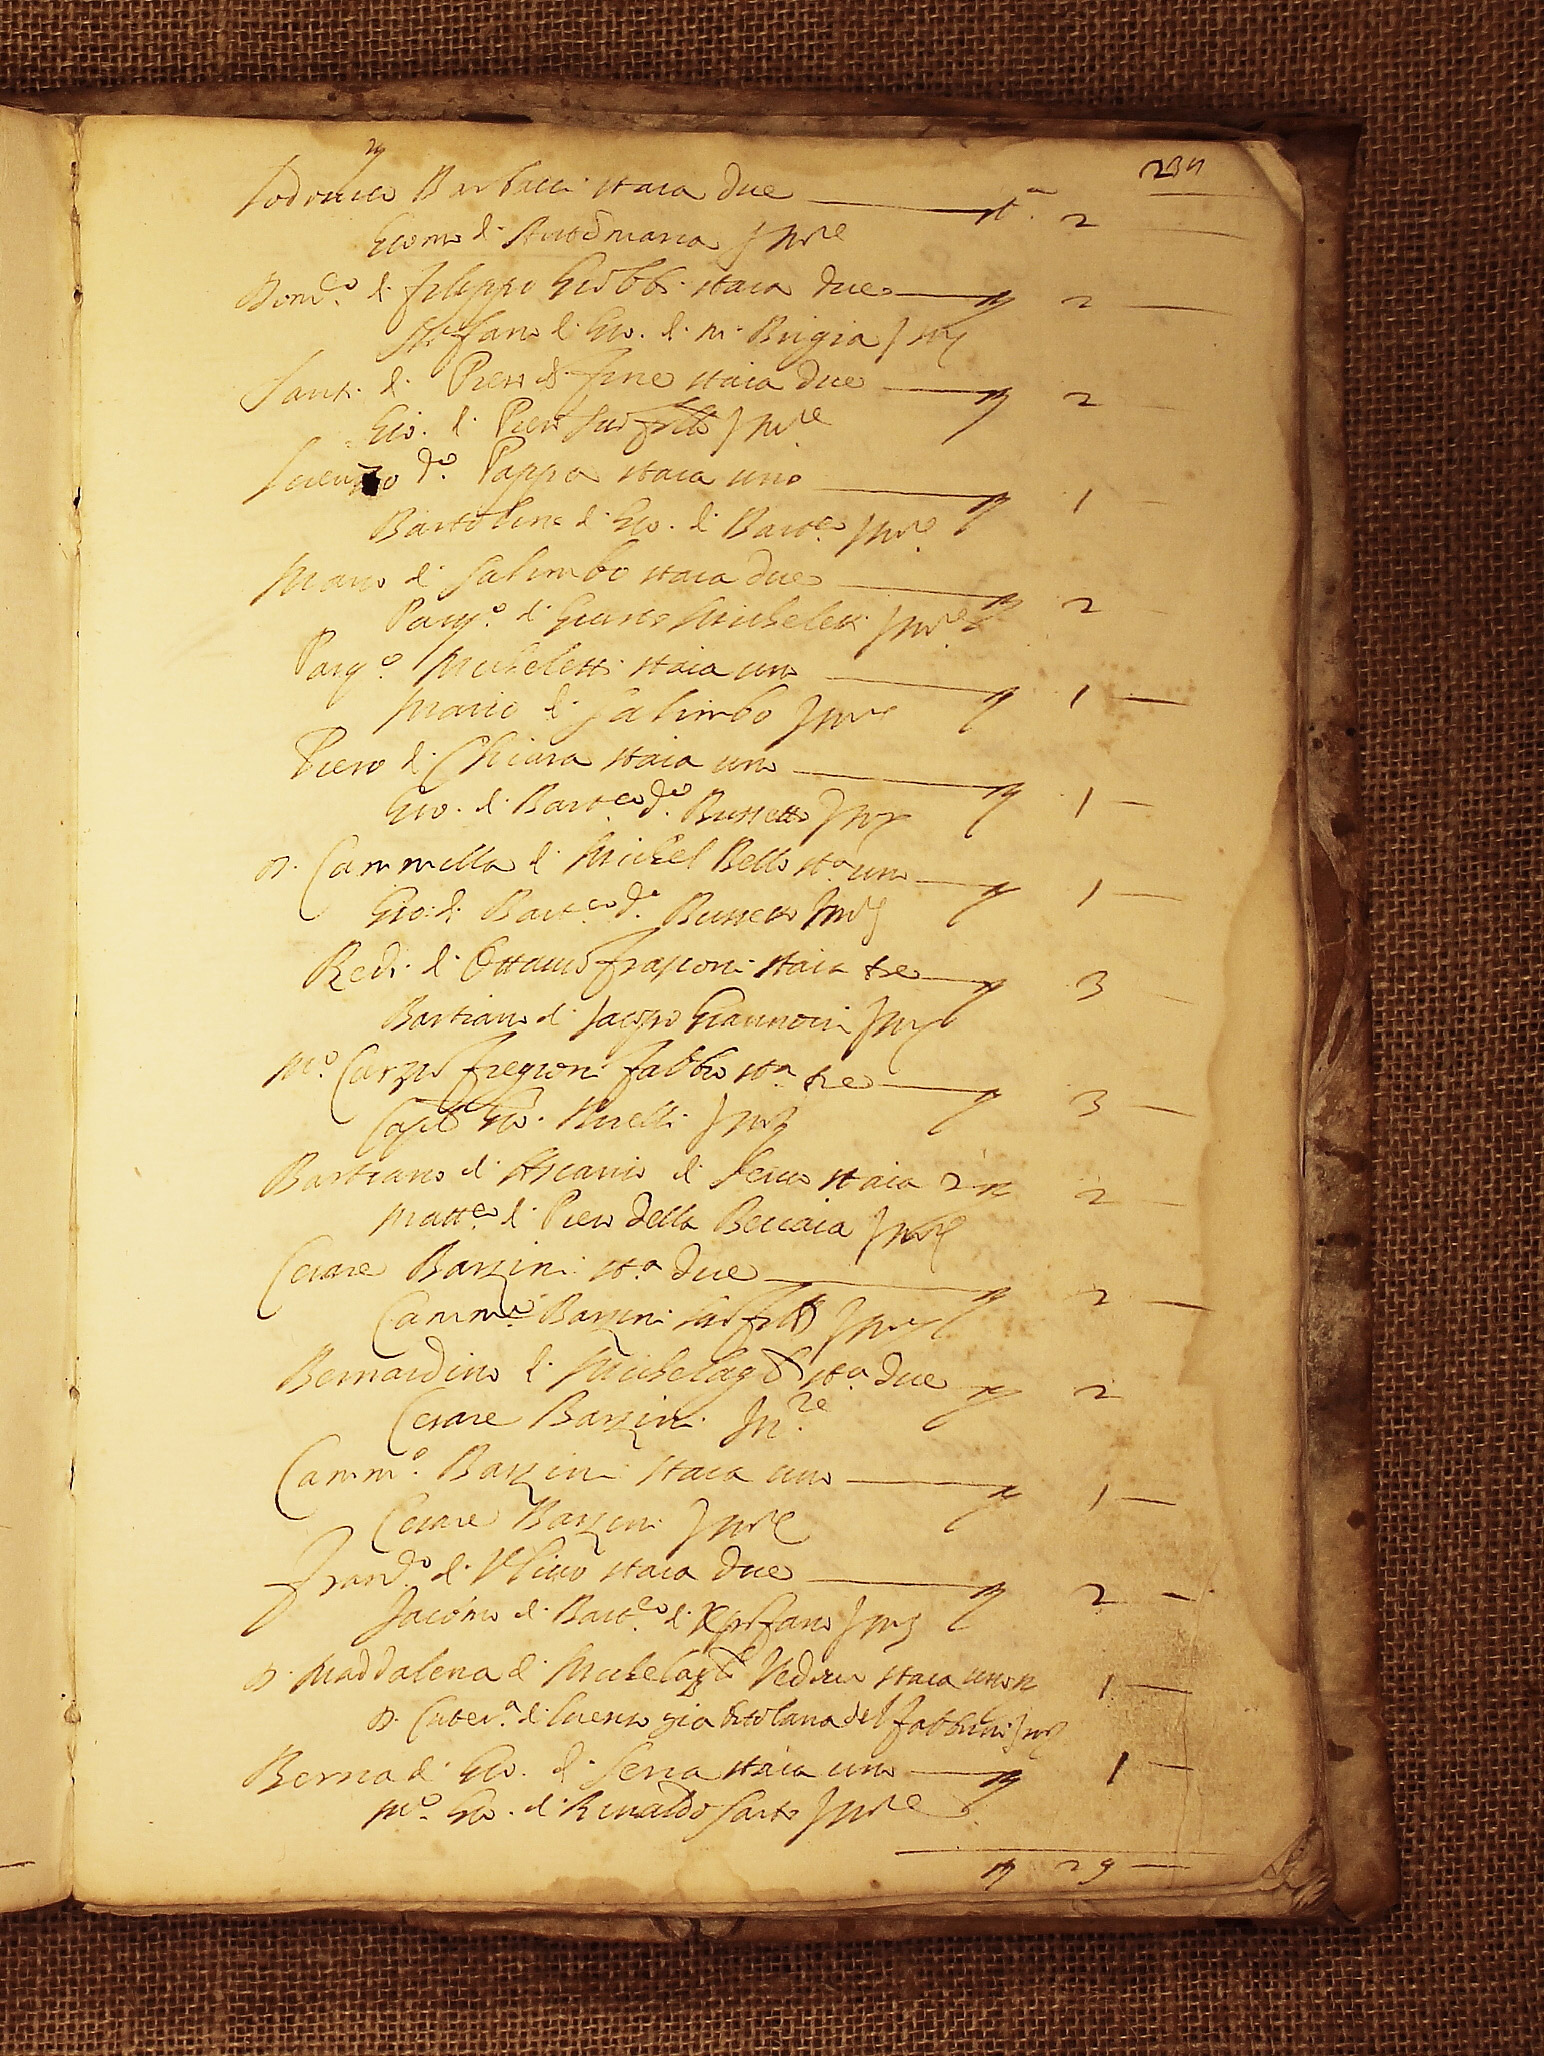 234
Lodovico Barbacci staia due st.a 2
Giomo di Antomaria
Dom.co di Filippo Giobbi staia due 2
Steffano di Gio. di M. Brigia
Santi di Piero di Fine staia due 2
Gio. di Piero suo
Lorenzo d.o Pappa staia uno 1
Bartolino di Gio. di Bart.eo
Mario di Salimbo staia due 2
Pasq.o di Giusto Micheletti
Pasq.o Micheletti staia uno 1
Mario di Salimbo
Piero di Chiara staia uno 1
Gio. di Bart.eo d.o Bussetto
D. Cammilla di Michel Bello st.a uno 1
Gio: di Bart.eo d.o Bussetto
Redi di Ottavio Frasconi staia tre 3
Bastiano di Jacopo Giannoni
M.o Carzio Fregioni Fabbro st.a tre 3
Cap. Gio.
Bastiano di Ascanio di staia 2 2
Matt.eo di Piero della Beccaia
Cesare Barzini st.a due 2
Camm.o Barzini suo
Bernardino di Michelag.o st.a due 2
Cesare Barzini
Camm.o Barzini staia uno 1
Cesare Barzini
Fran.co di Ulivo staia due 2
Jacomo di Bart.eo di
D. Maddalena di Michelag.o staia uno 1
D. Cater.a di Lorenzo già del
Berna di Gio. di staia uno 1
M.o Gio. di Rinaldo Sarto
29